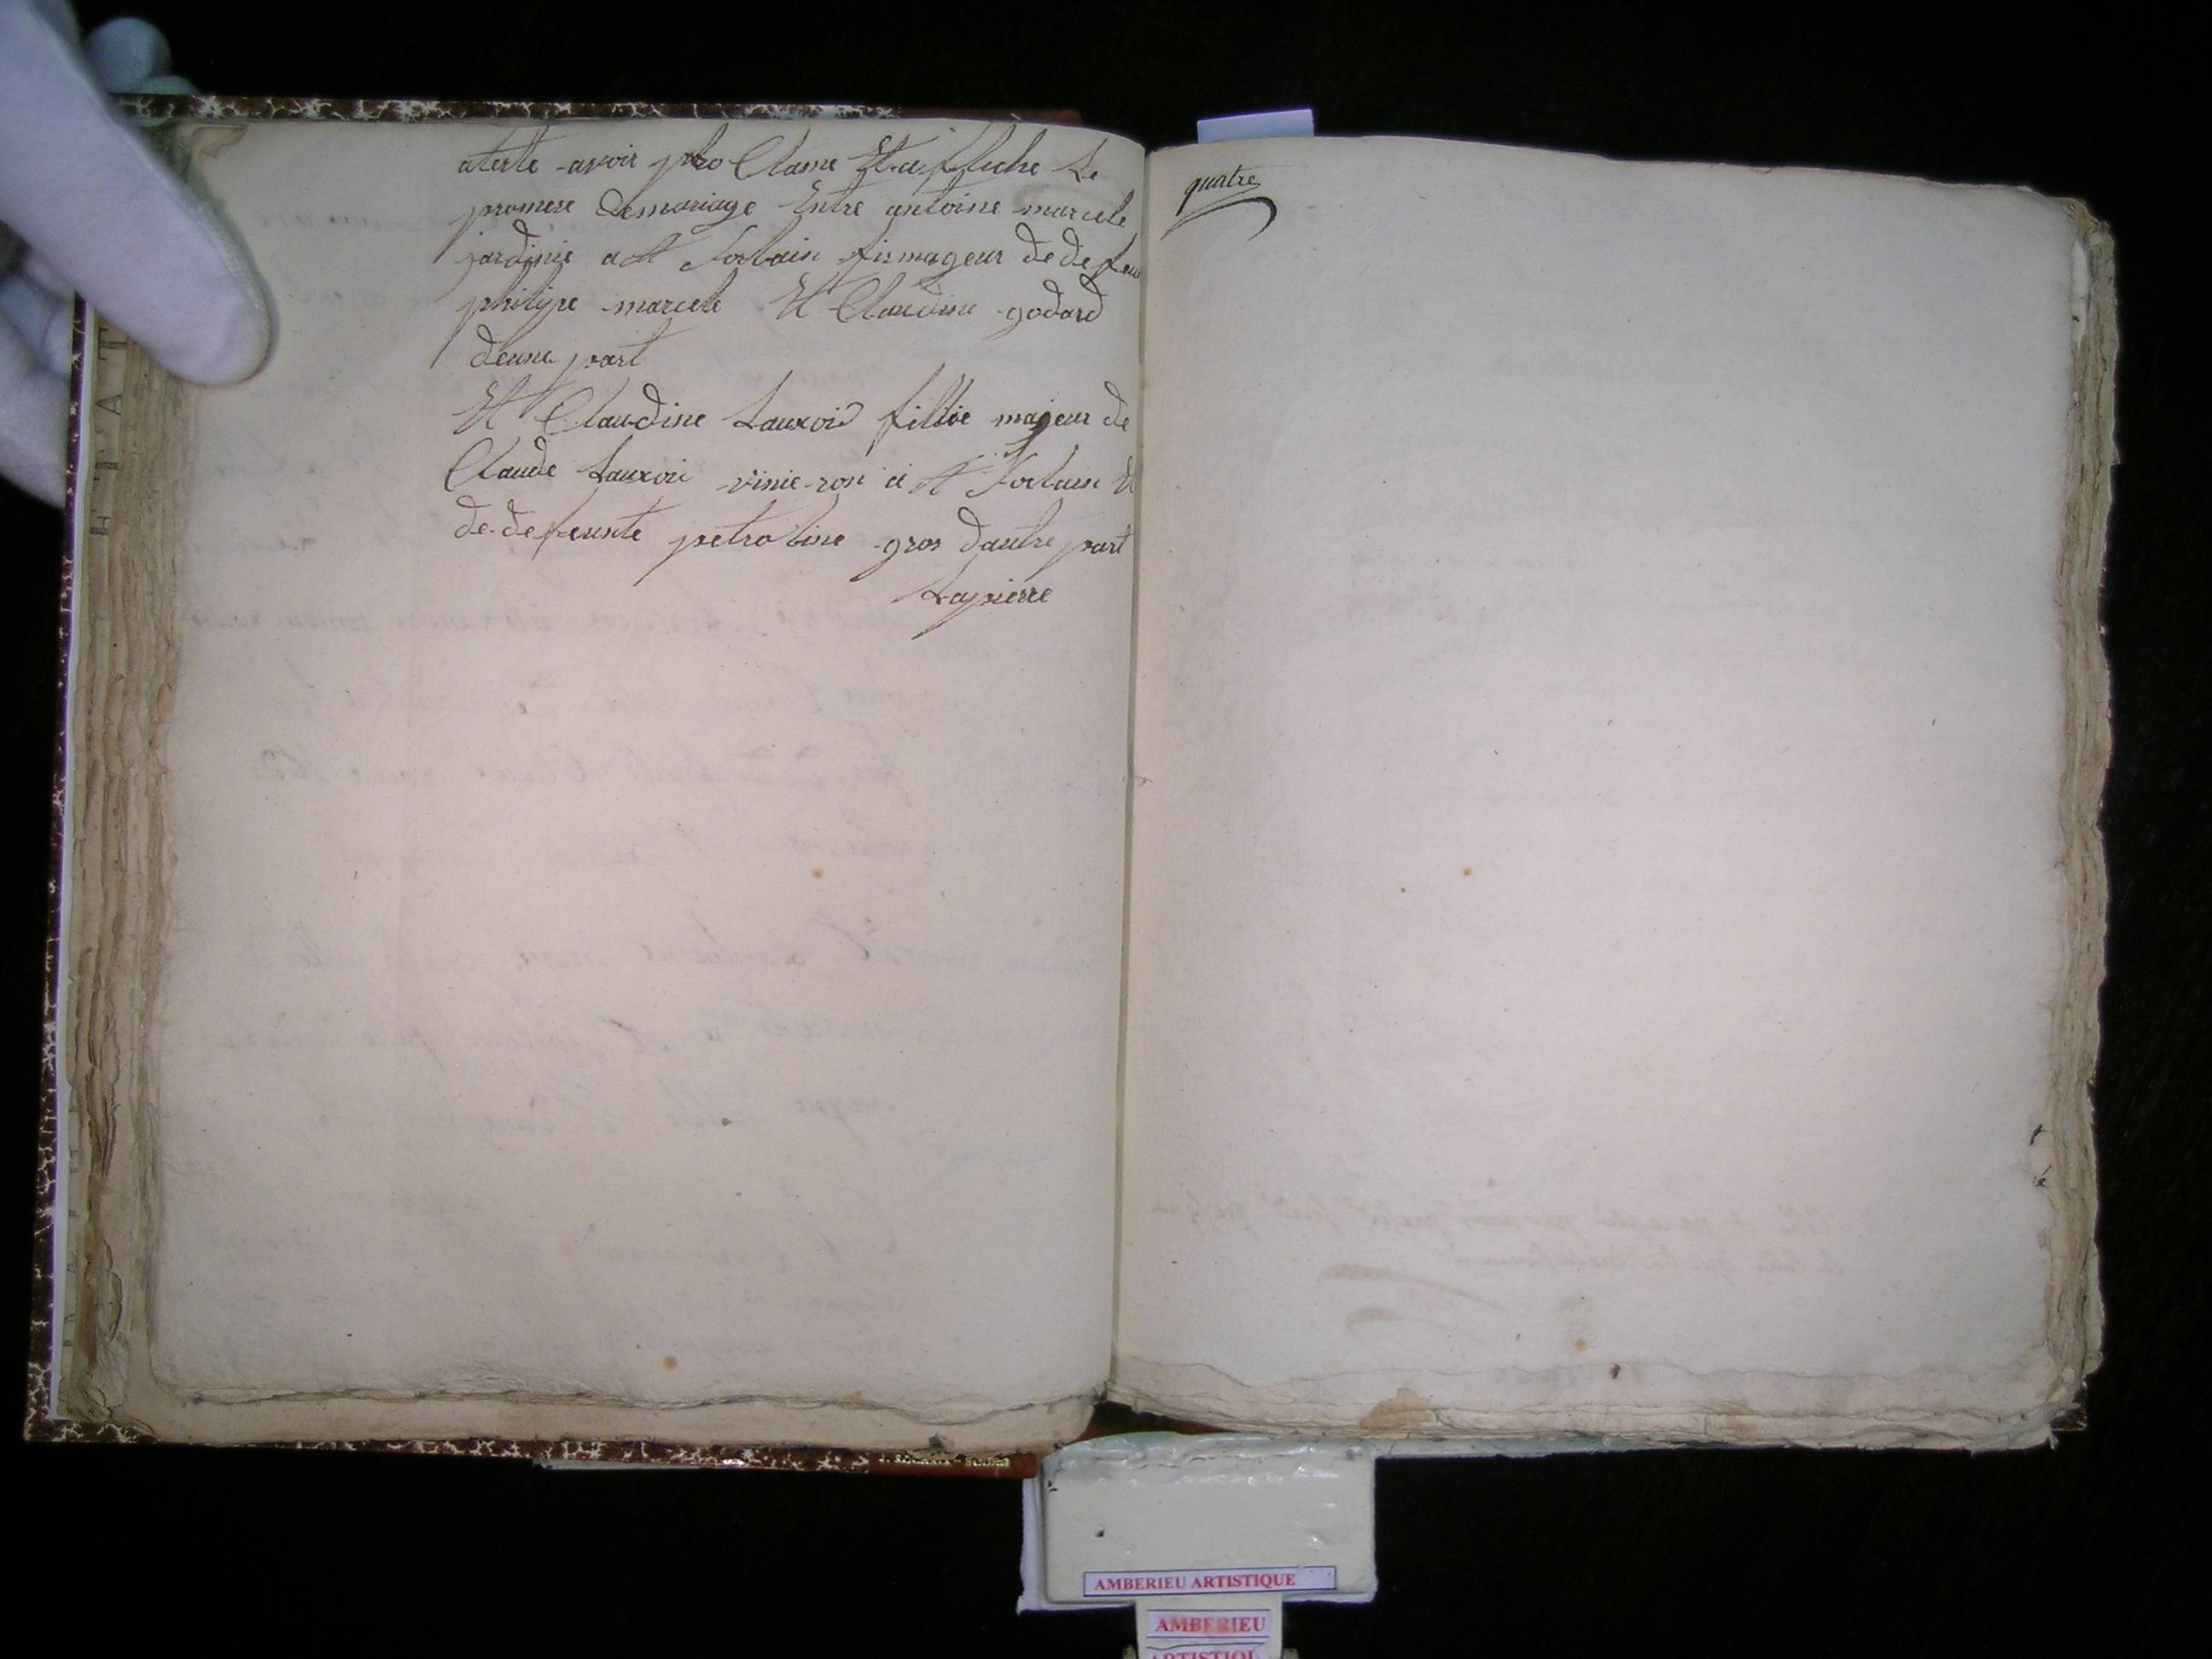 ateste avoir pro Clame Et affiche Le
promese de mariage Entre antoine marcele
jardinie a St Sorlain fis mageur de defeu
philipe marcele Et Claudine godard
deune part
Et Claudine Lauroi fillie majeur de
Claude Lauroi vinie-ron a St Sorlain Et
de defeunte petroline gros dautre part
Lapierre
quatre
AMBERIEU ARTISTIQUE
AMBERIEU
ARTISTIQUE